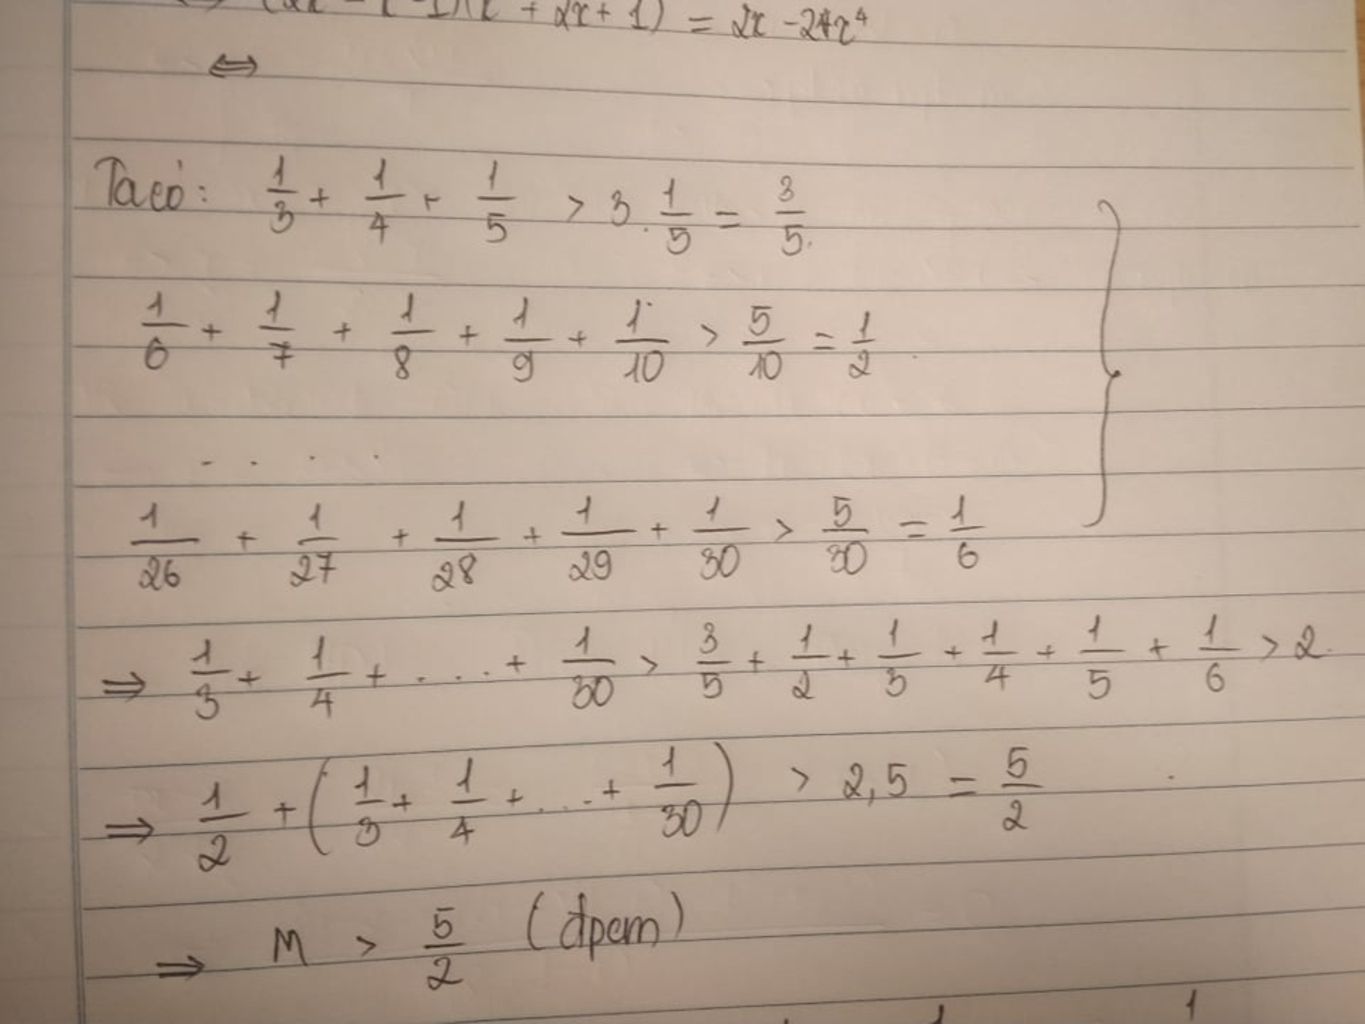 = 2x - 24x⁴
⇔
Ta có: 1/3 + 1/4 + 1/5 > 3 . 1/5 = 3/5.
1/6 + 1/7 + 1/8 + 1/9 + 1/10 > 5/10 = 1/2
. . . .
1/26 + 1/27 + 1/28 + 1/29 + 1/30 > 5/30 = 1/6
⇒ 1/3 + 1/4 + . . . . + 1/30 > 3/5 + 1/2 + 1/3 + 1/4 + 1/5 + 1/6 > 2.
⇒ 1/2 + (1/3 + 1/4 + . . . + 1/30) > 2,5 = 5/2
⇒ M > 5/2 (đpcm)